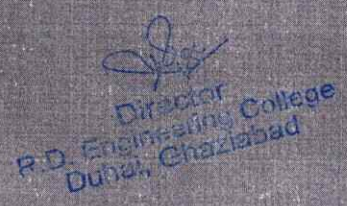 Director
R.D. Engineering College
Duhai, Ghaziabad